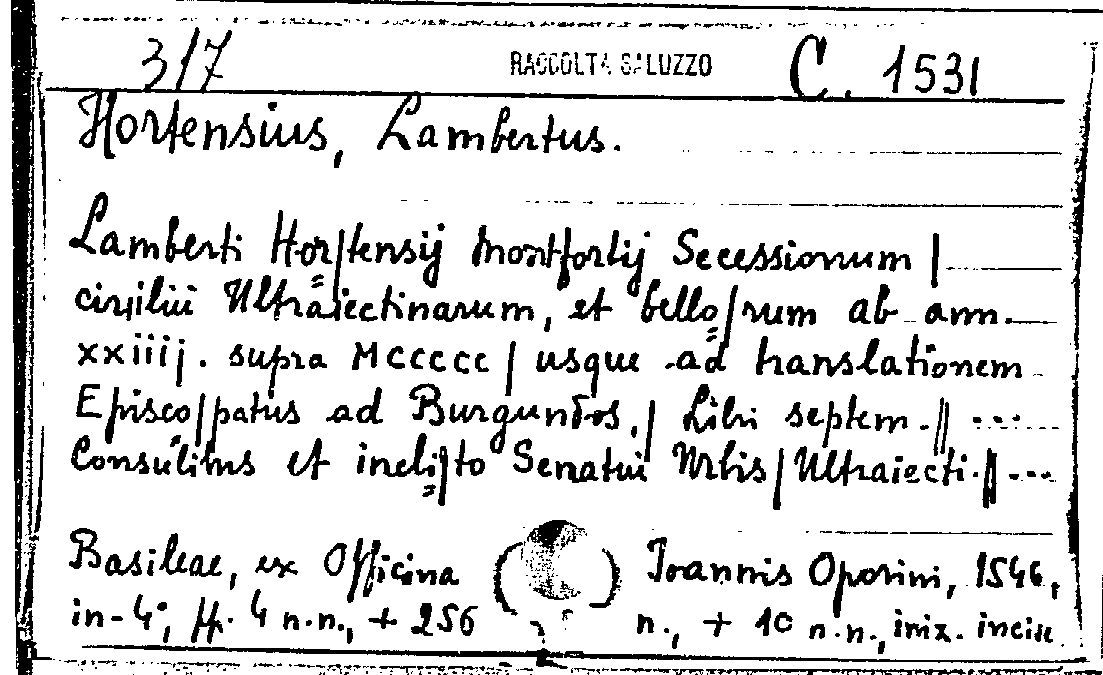 317 RACCOLTA SALUZZO C. 1531
Hortensius, Lambertus.
Lamberti Hor/tensij Montfortij Secessionum /
civiliū Ultraiectinarum, et bello/rum ab ann.
xxiiij. supra MCCCCC / usque ad translationem
Episco/patus ad Burgundos, / Libri septem. // ...
Consulibus et incli/to Senatui Urbis / Ultraiecti. // ...
Basileae, ex Officina ( ) Ioannis Oporini, 1546,
in-4°, pp. 4 n.n., + 256 n., + 10 n.n., iniz. incise